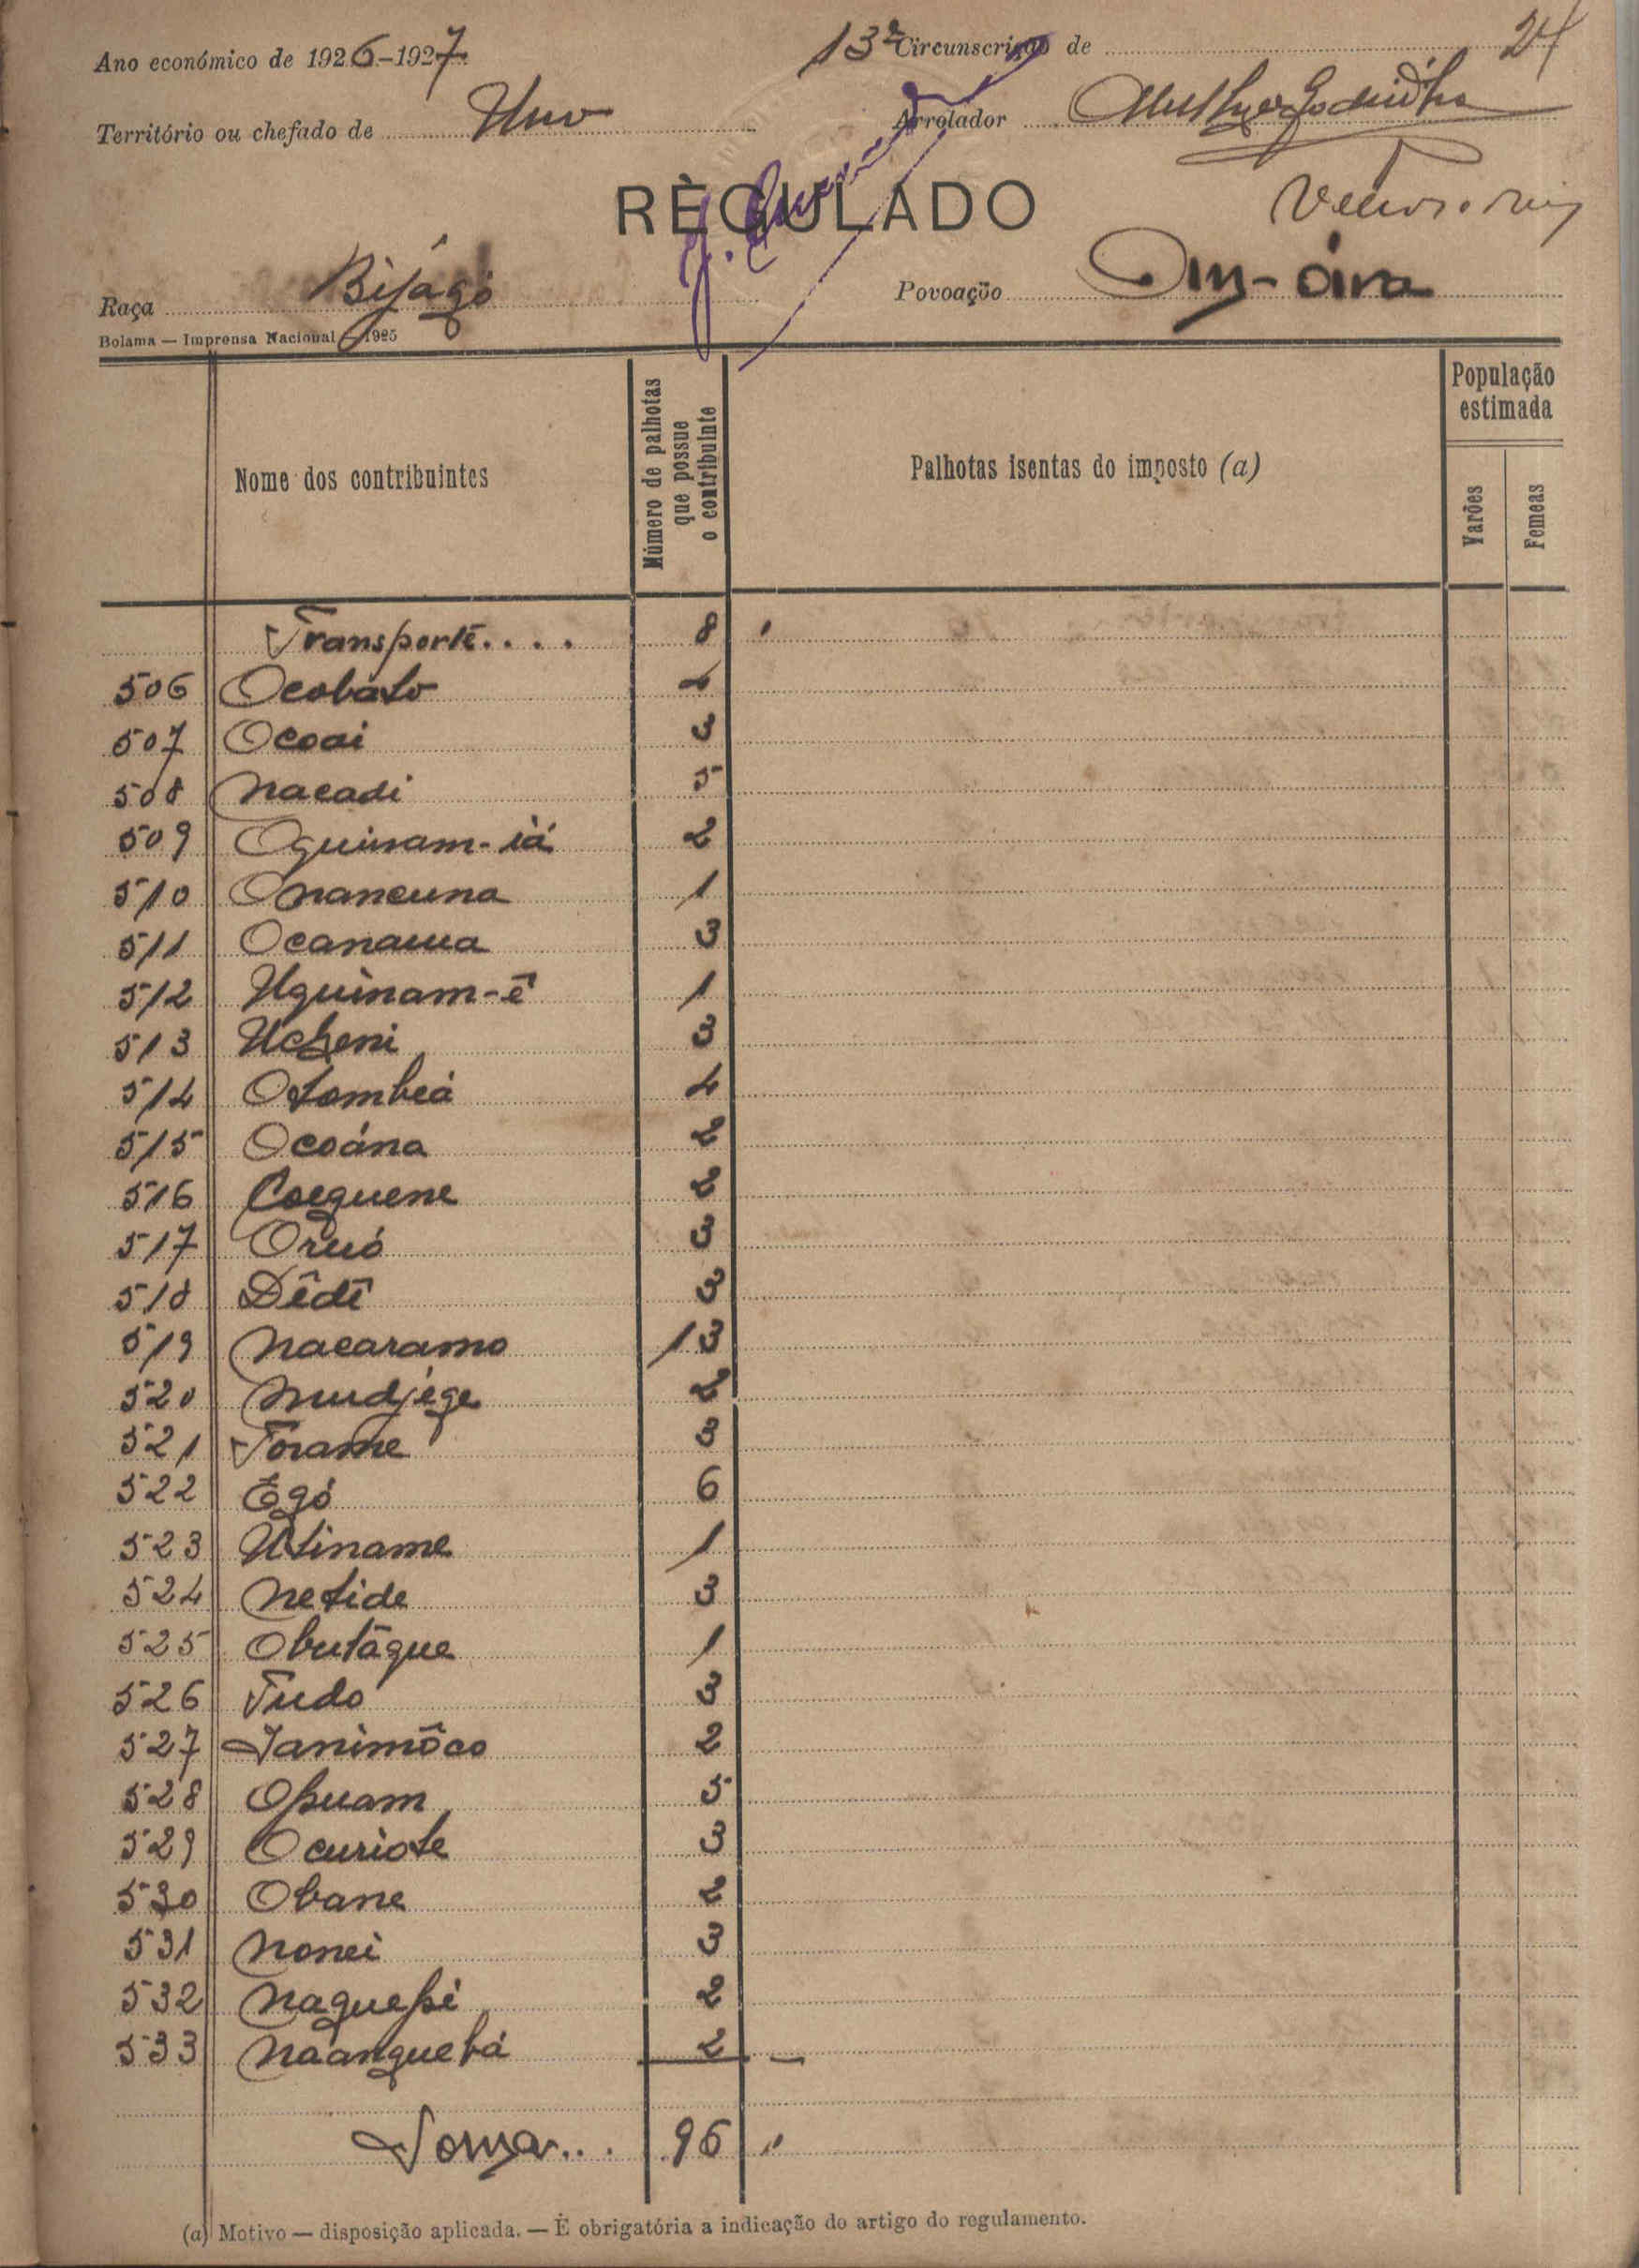 24
Ano económico de 1926-1927
13ª Circunscrição de
Território ou chefado de Uno
Arrolador
RÈGULADO
Raça Bijágó
Povoação
Bolama — Imprensa Nacional — 1925
Nome dos contribuintes
Número de palhotas que possue o contribuinte
Palhotas isentas do imposto (a)
População estimada
Varões
Femeas
Transporte.... 8 "
506 Ocobato 4
507 Ocoai 3
508 Nacadi 5
509 Oguinam-iá 2
510 Onancuna 1
511 Ocanaua 3
512 Uguinam-ê 1
513 Ucheni 3
514 Otombeá 4
515 Ocoána 2
516 Coequene 2
517 Oruó 3
518 Dêdê 3
519 Nacaramo 13
520 Mudjége 2
521 Torame 3
522 Egó 6
523 Utiname 1
524 Netide 3
525 Obutãque 1
526 Tudo 3
527 Janimôco 2
528 Opuam 5
529 Ocuriote 3
530 Obane 2
531 Nonei 3
532 Naquepé 2
533 Náanquebá 2
Soma... 96 "
(a) Motivo — disposição aplicada. — É obrigatória a indicação do artigo do regulamento.